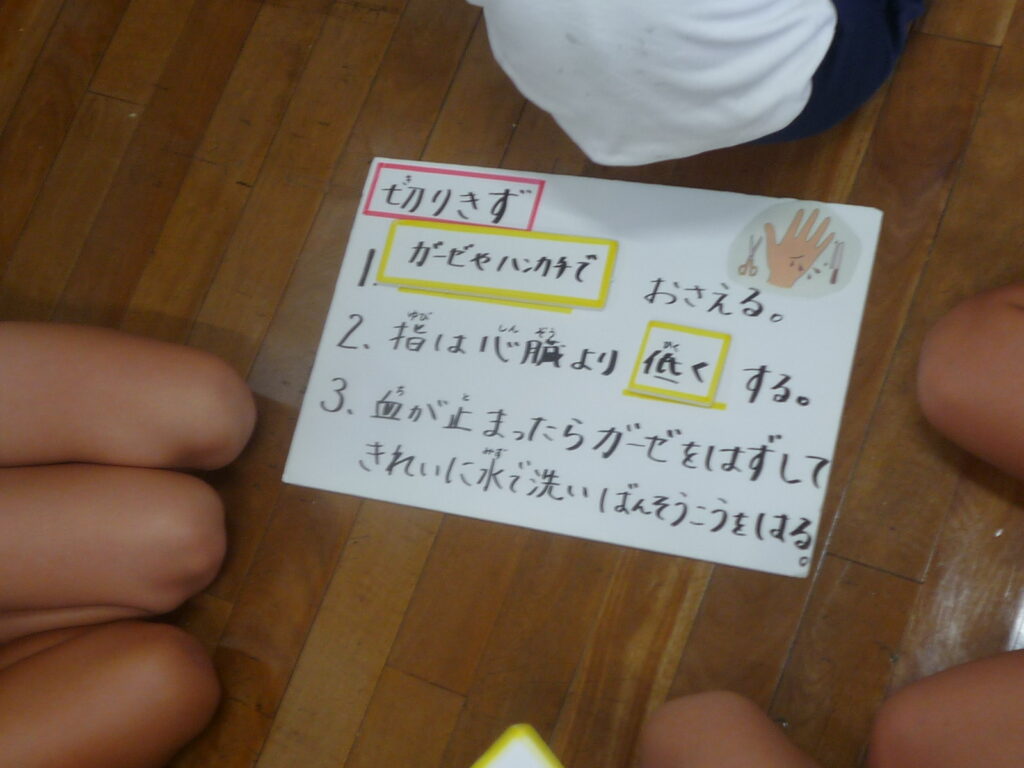 切りきず
1. ガーゼやハンカチで おさえる。
2. 指は心臓より 低く する。
3. 血が止まったらガーゼをはずして
きれいに水で洗いばんそうこうをはる。